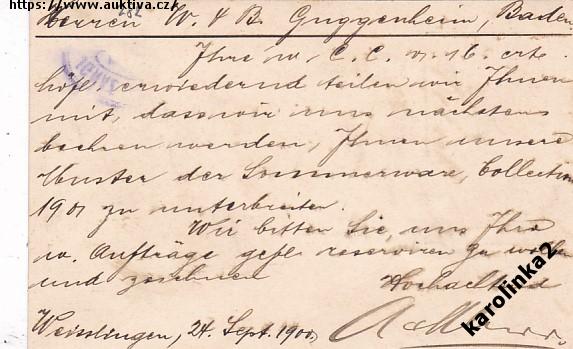 https://www.auktiva.cz/
Herren W. & B. Guggenheim, Baden.
Ihre w. C. C. v. 16. crts.
höfl. erwiedernd teilen wir Ihnen
mit, dass wir uns nächstens
beehren werden, Ihnen unsere
Muster der Sommerware, Collection
1901 zu unterbreiten.
Wir bitten Sie, uns Ihre
w. Aufträge gefl. reserviren zu wollen
und zeichnen Hochachtend
Weisslingen, 24. Sept. 1900.
karolinka2